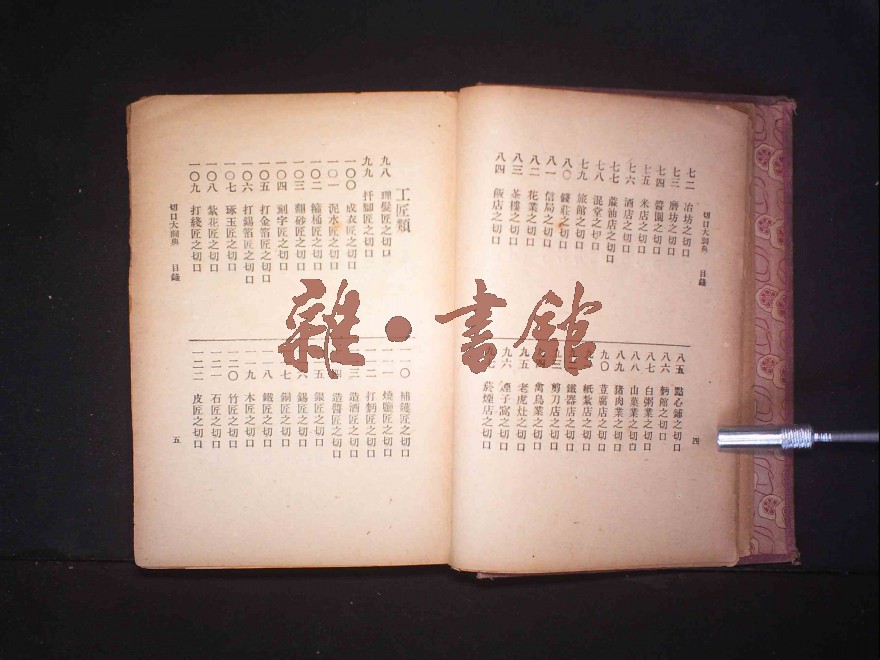 切口大詞典 目錄
四
七二 冶坊之切口
七三 磨坊之切口
七四 醬園之切口
七五 米店之切口
七六 酒店之切口
七七 蔴油店之切口
七八 混堂之切口
七九 旅館之切口
八〇 錢莊之切口
八一 信局之切口
八二 花業之切口
八三 茶樓之切口
八四 飯店之切口
八五 點心鋪之切口
八六 麪館之切口
八七 白粥業之切口
八八 山薬業之切口
八九 猪肉業之切口
九〇 荳腐店之切口
紙紮店之切口
鐵器店之切口
剪刀店之切口
禽鳥業之切口
九五 老虎灶之切口
九六 煙子窩之切口
菸煙店之切口
工匠類
九八 理髮匠之切口
九九 扦腳匠之切口
一〇〇 成衣匠之切口
一〇一 泥水匠之切口
一〇二 箍桶匠之切口
一〇三 翻砂匠之切口
一〇四 刻字匠之切口
一〇五 打金箔匠之切口
一〇六 打錫箔匠之切口
一〇七 琢玉匠之切口
一〇八 紮花匠之切口
一〇九 打綫匠之切口
一一〇 補鑊匠之切口
一一一 燒鹽匠之切口
一一二 打麪匠之切口
造酒匠之切口
造醬匠之切口
銀匠之切口
錫匠之切口
銅匠之切口
一一八 鐵匠之切口
一一九 木匠之切口
一二〇 竹匠之切口
一二一 石匠之切口
一二二 皮匠之切口
切口大詞典 目錄
五
雜·書館